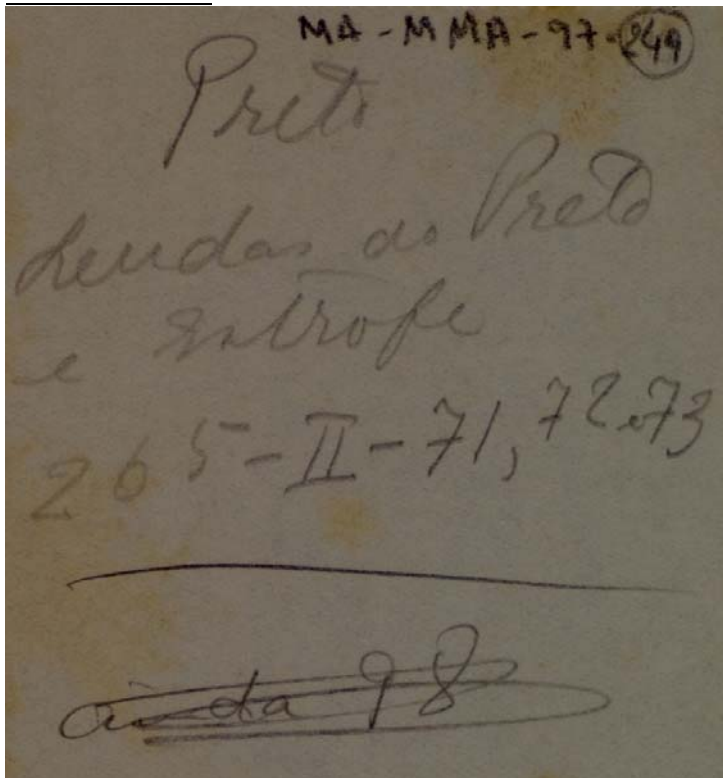 MA-MMA-97-249
Preto
Lendas do Preto
e Estrofe
265-II-71, 72.73
ainda 98